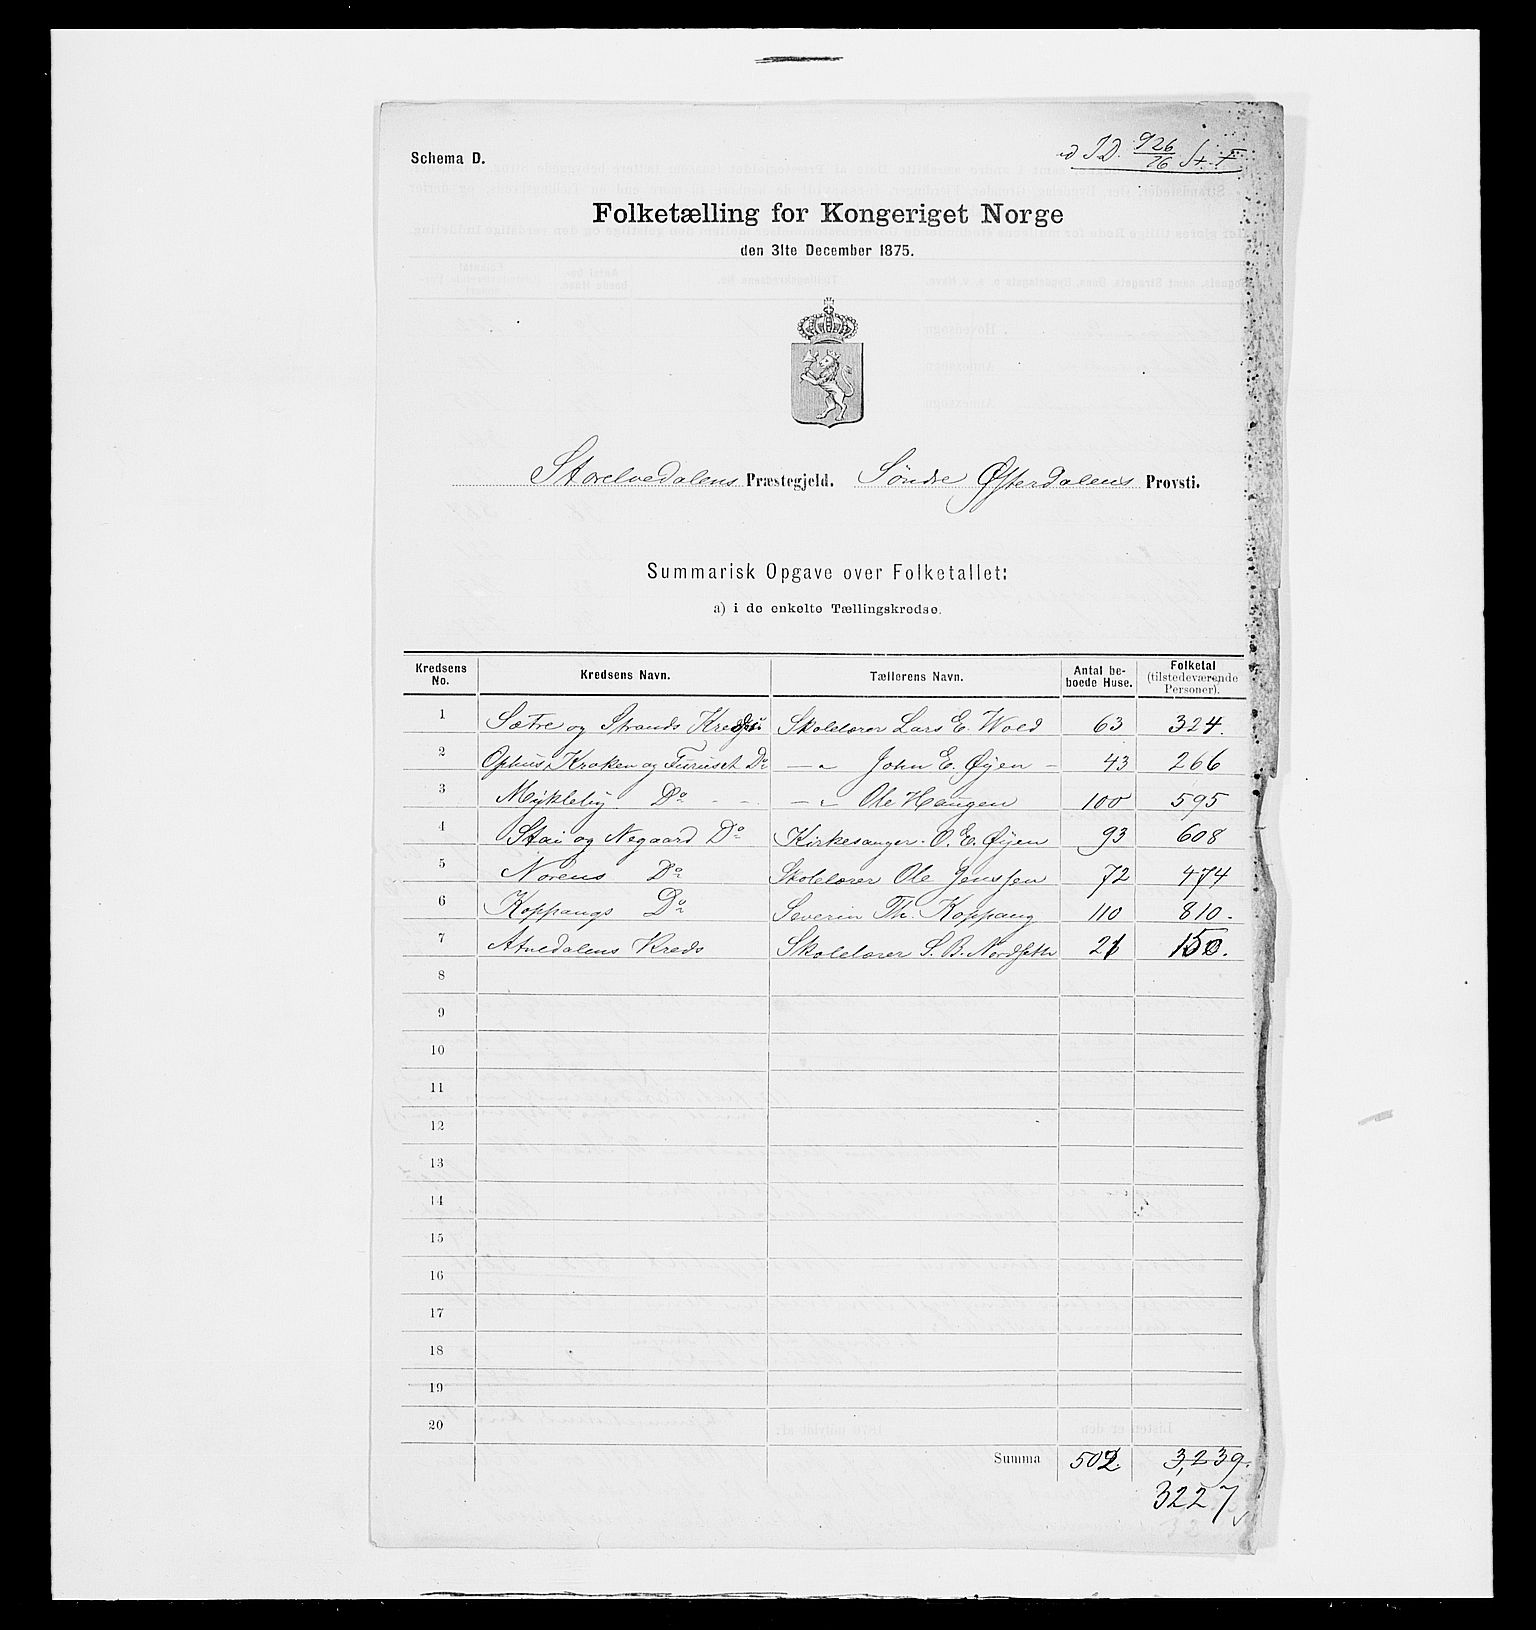 Schema D.
ad I.D. 926/76 St. F
Folketælling for Kongeriget Norge
den 31te December 1875.
Storelvedalens Præstegjeld. Søndre Østerdalens Provsti.
Summarisk Opgave over Folketallet:
a) i de enkelte Tællingskredse.
Kredsens No. Kredsens Navn. Tællerens Navn. Antal beboede Huse. Folketal (tilstedeværende Personer).
1 Sætre og Strands Kredse Skolelærer Lars E. Wold 63 324.
2 Ophus, Kroken og Furuset Do — „ John E. Øyen – 43 266
3 Mykleby Do - - — „ Ole Haugen 100 595
4 Stai og Negaard Do Kirkesanger O. E. Øyen 93 608
5 Norens Do Skolelærer Ole Jenssen 72 474
6 Koppangs Do Severin Th. Koppang 110 810.
7 Atnedalens Kreds Skolelærer S. B. Nordseth 21 150.
8
9
10
11
12
13
14
15
16
17
18
19
20
Summa 502. 3,239.
3227